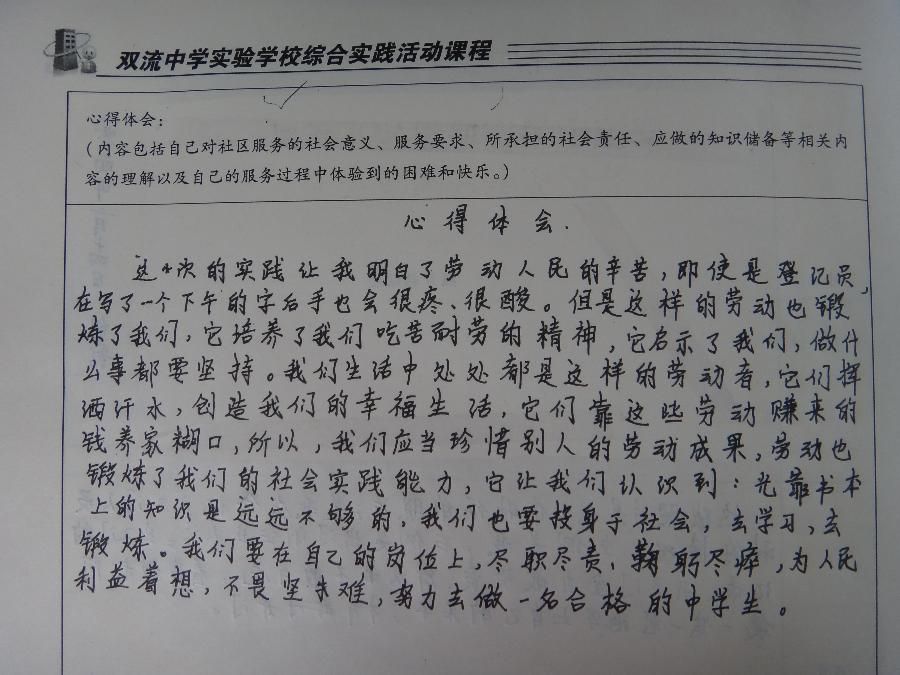 双流中学实验学校综合实践活动课程
心得体会:
(内容包括自己对社区服务的社会意义、服务要求、所承担的社会责任、应做的知识储备等相关内
容的理解以及自己的服务过程中体验到的困难和快乐。)
心得体会.
这次的实践让我明白了劳动人民的辛苦,即使是登记员,
在写了一个下午的字后手也会很疼、很酸。但是这样的劳动也锻
炼了我们,它培养了我们吃苦耐劳的精神,它启示了我们,做什
么事都要坚持。我们生活中处处都是这样的劳动者,它们挥
洒汗水,创造我们的幸福生活,它们靠这些劳动赚来的
钱养家糊口,所以,我们应当珍惜别人的劳动成果,劳动也
锻炼了我们的社会实践能力,它让我们认识到:光靠书本
上的知识是远远不够的,我们也要投身于社会,去学习,去
锻炼。我们要在自己的岗位上,尽职尽责,鞠躬尽瘁,为人民
利益着想,不畏坚难,努力去做一名合格的中学生。